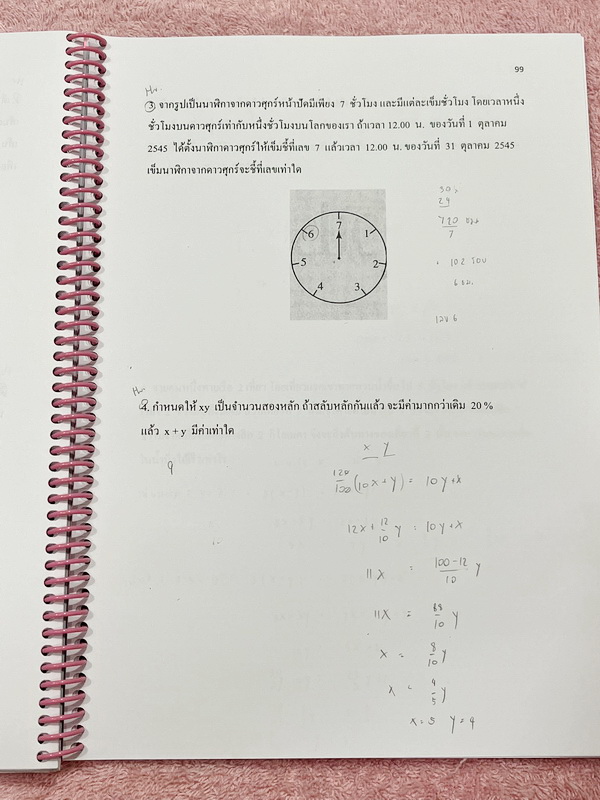 99
Hw
3 จากรูปเป็นนาฬิกาจากดาวศุกร์หน้าปัดมีเพียง 7 ชั่วโมง และมีแต่ละเข็มชั่วโมง โดยเวลาหนึ่ง
ชั่วโมงบนดาวศุกร์เท่ากับหนึ่งชั่วโมงบนโลกของเรา ถ้าเวลา 12.00 น. ของวันที่ 1 ตุลาคม
2545 ได้ตั้งนาฬิกาดาวศุกร์ให้เข็มชี้ที่เลข 7 แล้วเวลา 12.00 น. ของวันที่ 31 ตุลาคม 2545
เข็มนาฬิกาจากดาวศุกร์จะชี้ที่เลขเท่าใด
30 ×
24
720 ชม
7
102 รอบ
6 ชม.
เลข 6
7
6 1
5 2
4 3
Hw
4. กำหนดให้ xy เป็นจำนวนสองหลัก ถ้าสลับหลักกันแล้ว จะมีค่ามากกว่าเดิม 20 %
แล้ว x + y มีค่าเท่าใด
9
x y
120/100 (10x+y) = 10y+x
12x + 12/10 y = 10y+x
11x = 100-12/10 y
11x = 88/10 y
x = 8/10 y
x = 4/5 y
x=5 y=4